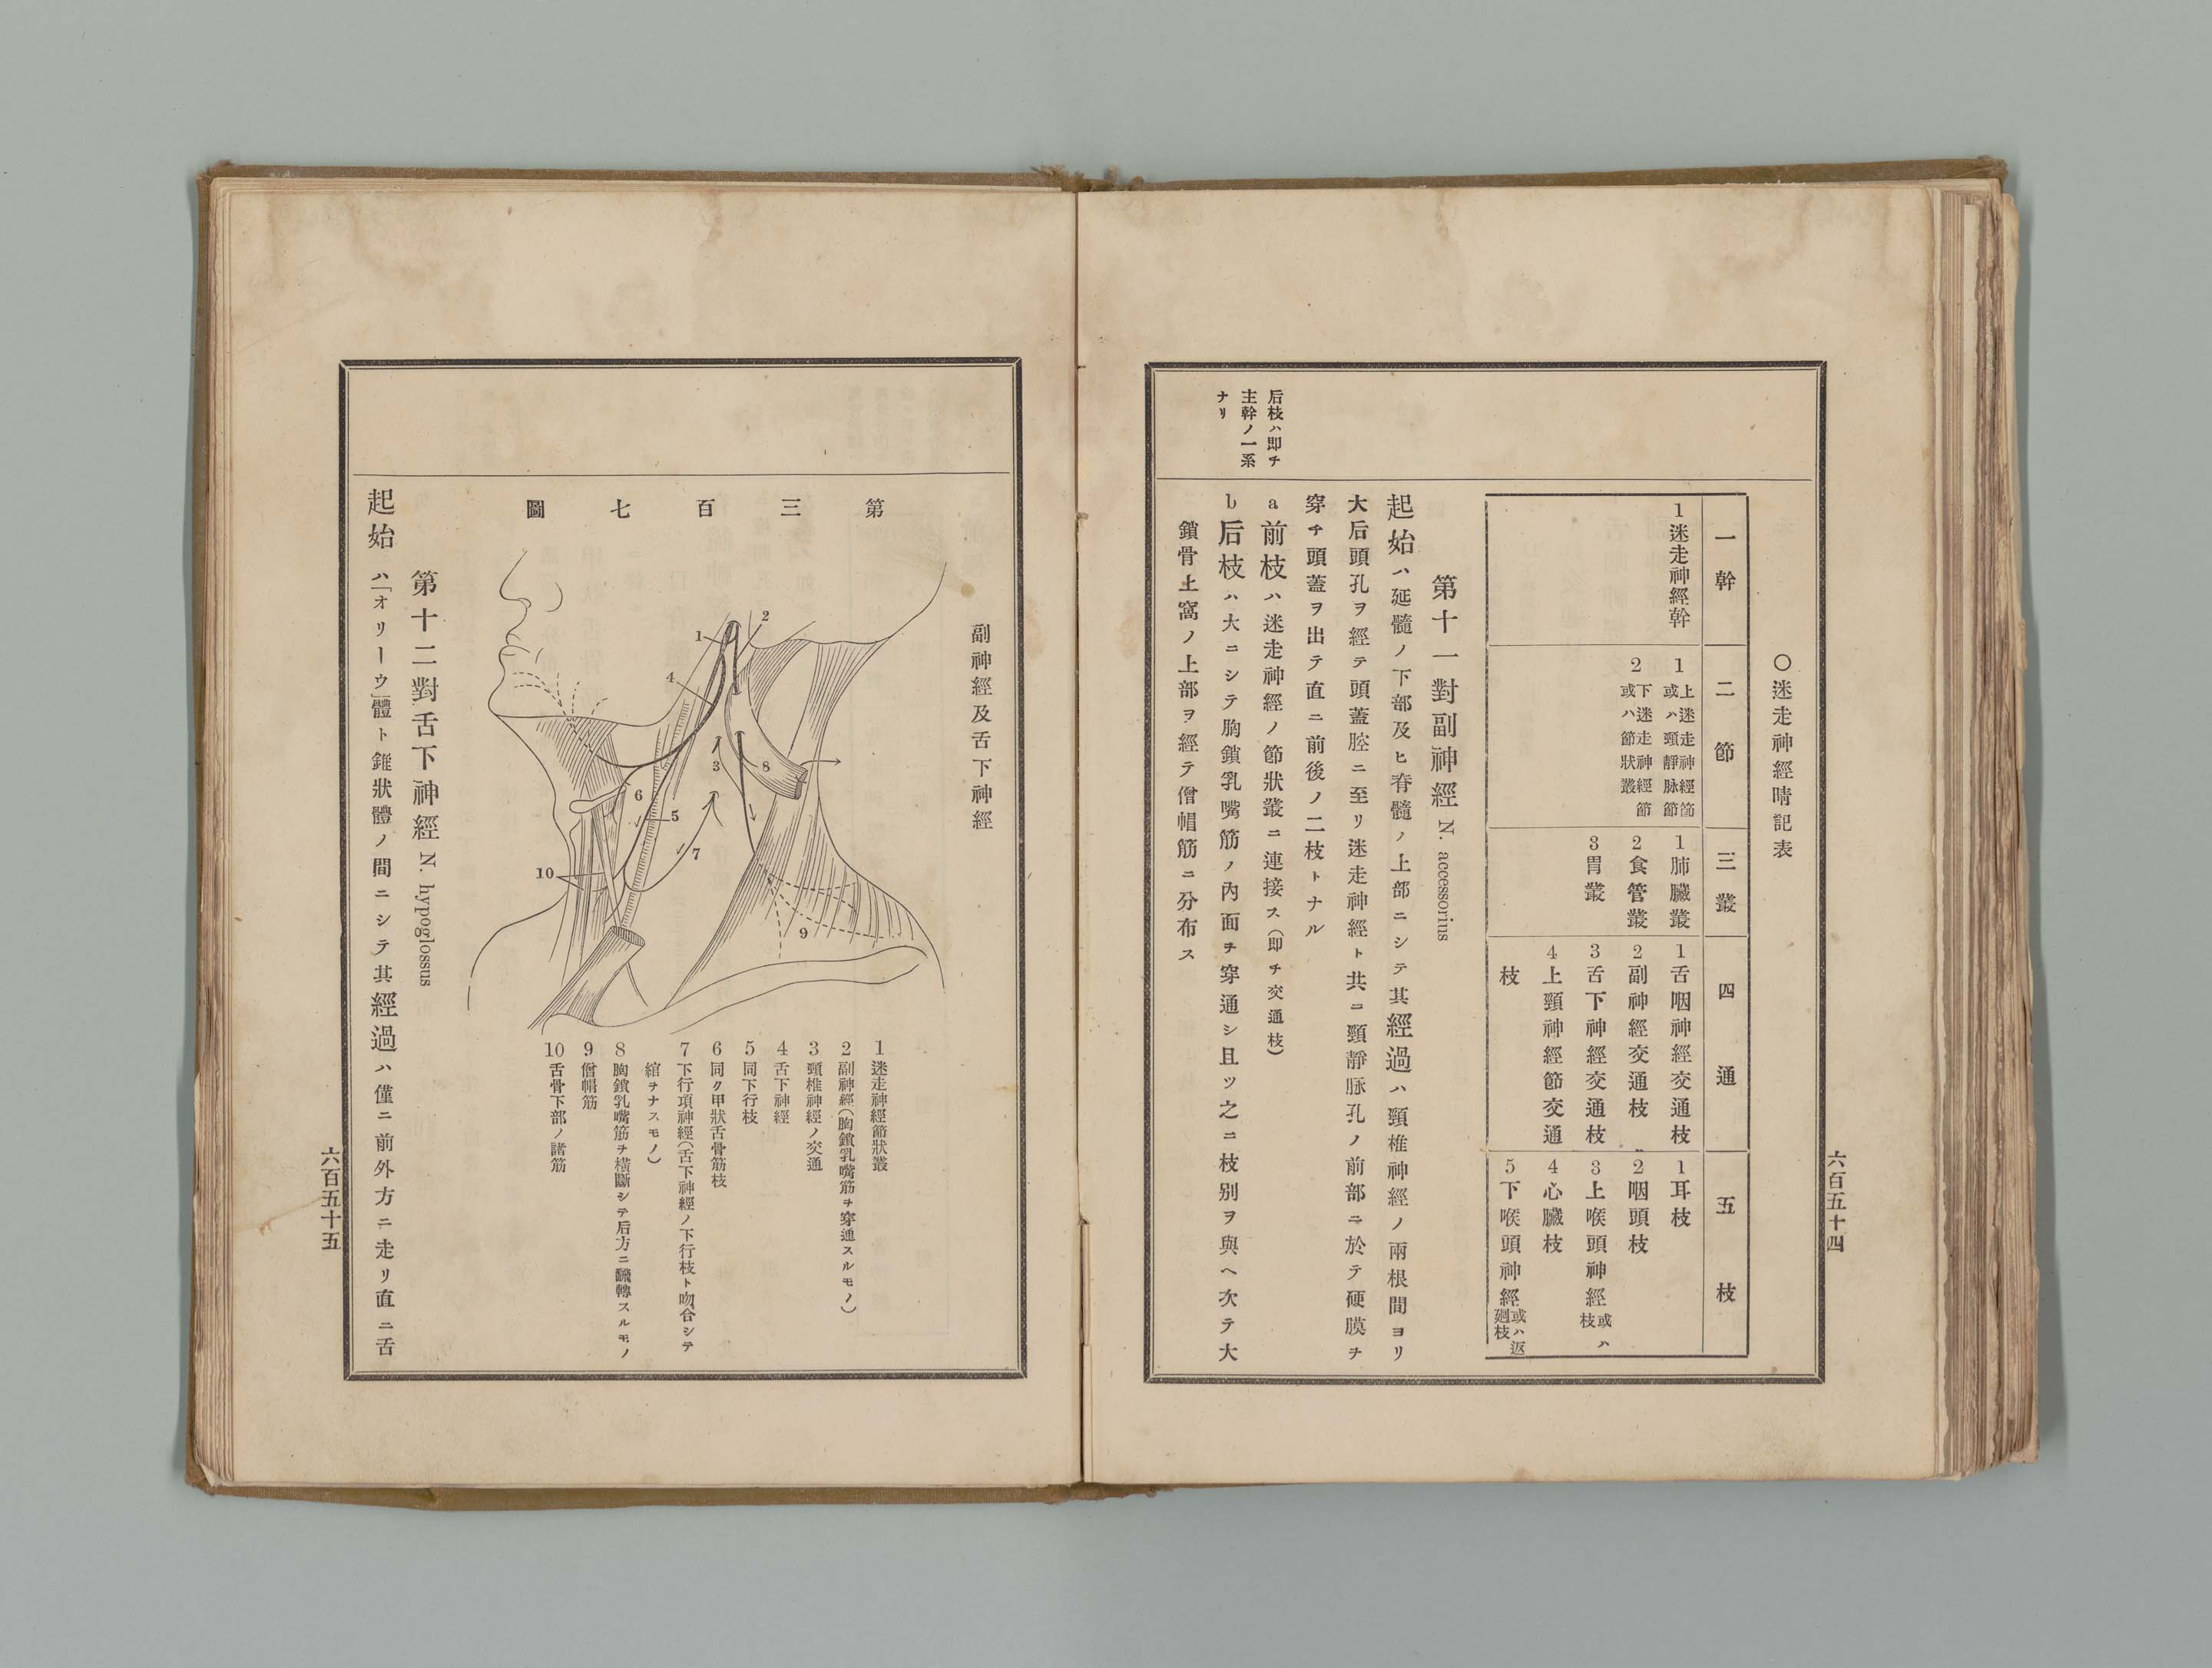 六百五十四
〇迷走神經暗記表
一幹
1迷走神經幹
二節
1上迷走神經節或ハ頸靜脉節
2下迷走神經節或ハ節狀叢
三叢
1肺臟叢
2食管叢
3胃叢
四通
1舌咽神經交通枝
2副神經交通枝
3舌下神經交通枝
4上頸神經節交通
枝
五枝
1耳枝
2咽頭枝
3上喉頭神經或ハ枝
4心臟枝
5下喉頭神經或ハ返廻枝
第十一對副神經 N. accessorius
起始ハ延髓ノ下部及ヒ脊髓ノ上部ニシテ其經過ハ頸椎神經ノ兩根間ヨリ
大后頭孔ヲ經テ頭蓋腔ニ至リ迷走神經ト共ニ頸靜脈孔ノ前部ニ於テ硬膜チ
穿チ頭蓋ヲ出テ直ニ前後ノ二枝トナル
a前枝ハ迷走神經ノ節狀叢ニ連接ス(即チ交通枝)
b后枝ハ大ニシテ胸鎖乳嘴筋ノ內面チ穿通シ且ツ之ニ枝別ヲ與ヘ次テ大
鎖骨上窩ノ上部ヲ經テ僧帽筋ニ分布ス
后枝ハ即チ
主幹ノ一系
ナリ
副神經及舌下神經
第三百七圖
1
2
3
4
5
6
7
8
9
10
1迷走神經節狀叢
2副神經(胸鎖乳嘴筋ヲ穿通スルモノ)
3頸椎神經ノ交通
4舌下神經
5同下行枝
6同ク甲狀舌骨筋枝
7下行項神經(舌下神經ノ下行枝ト吻合シテ
綰ヲナスモノ)
8胸鎖乳嘴筋チ橫斷シテ后方ニ飜轉スルモノ
9僧帽筋
10舌骨下部ノ諸筋
第十二對舌下神經 N. hypoglossus
起始ハ「オリーウ」體ト錐狀體ノ間ニシテ其經過ハ僅ニ前外方ニ走リ直ニ舌
六百五十五